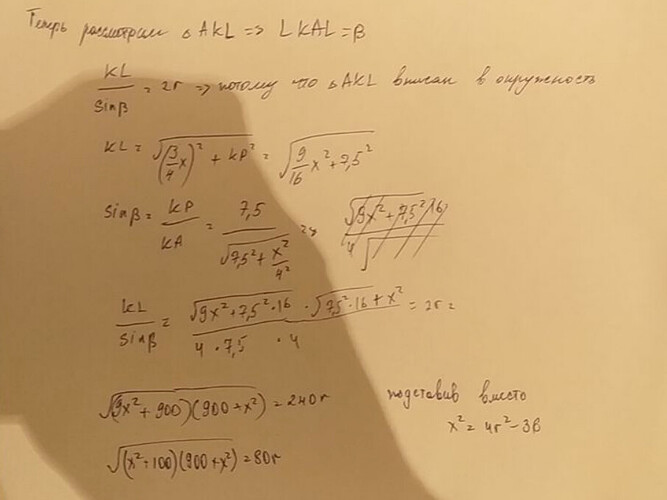 Теперь рассмотрим △AKL => ∠KAL = β
KL/sinβ = 2r => потому что △AKL вписан в окружность
KL = √((3/4 x)² + KP²) = √(9/16 x² + 7,5²)
sinβ = KP/KA = 7,5/√(7,5² + x²/4²) => √(9x² + 7,5² · 16)/4√
KL/sinβ = √(9x² + 7,5² · 16) · √(7,5² · 16 + x²)/(4 · 7,5 · 4) = 2r =
√((9x² + 900)(900 + x²)) = 240r
подставив вместо
x² = 4r² - 38
√((x² + 100)(900 + x²)) = 80r